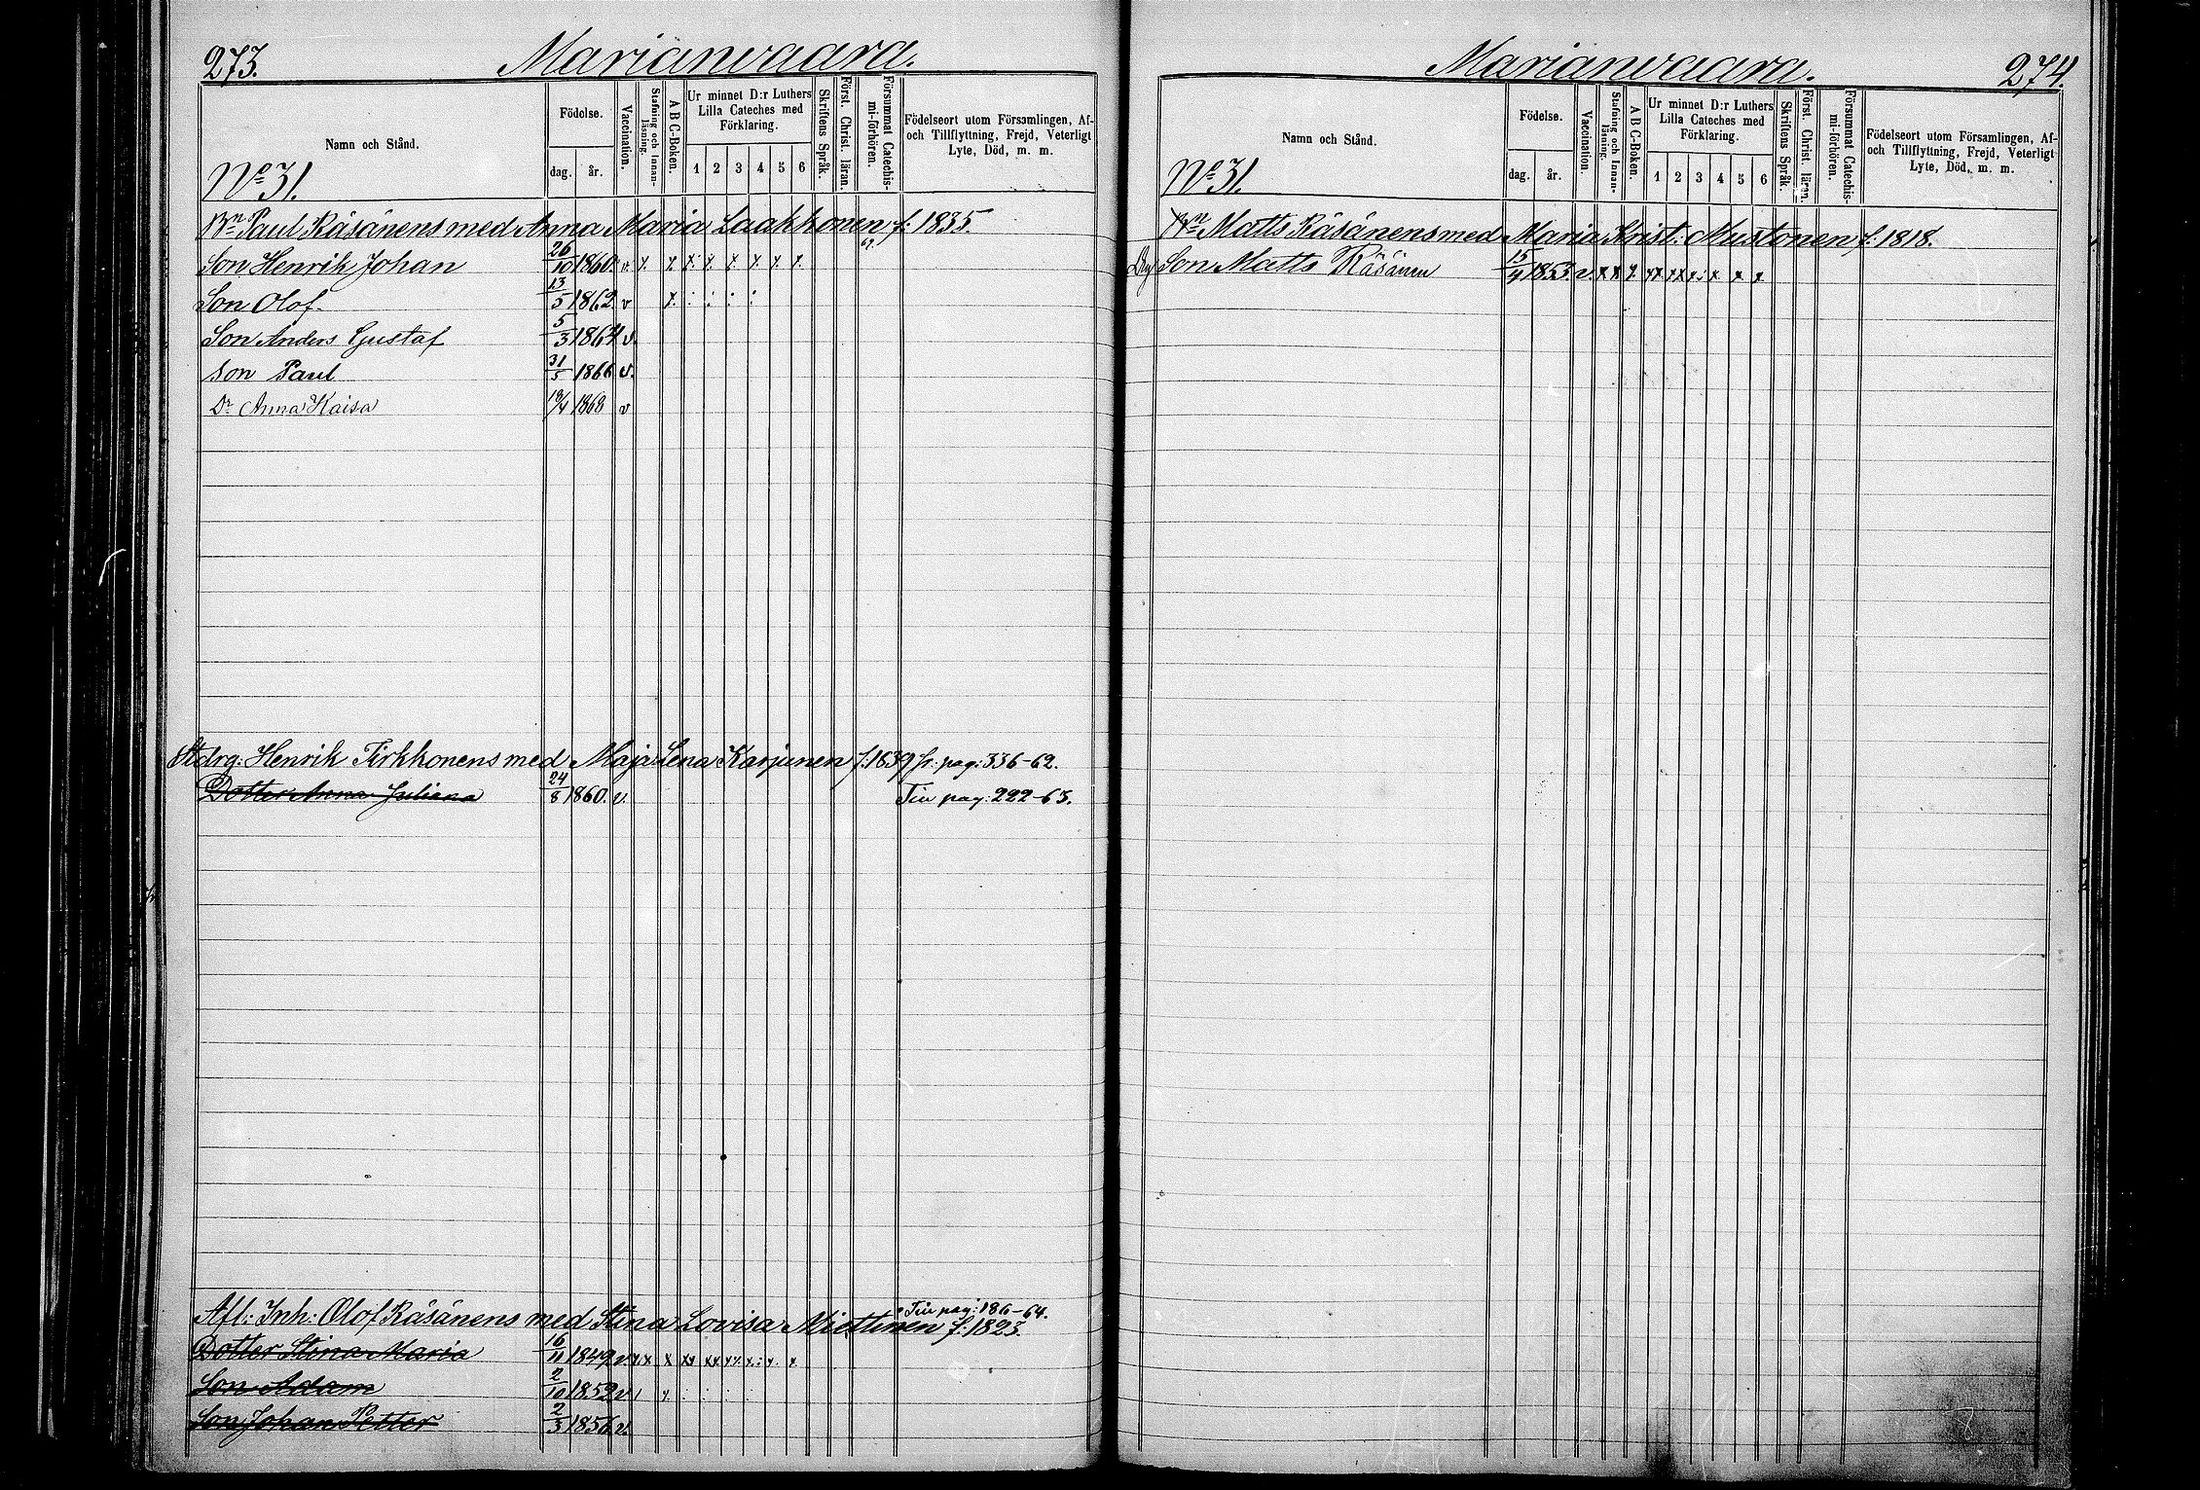 273.
Marianvaara.
Namn och Stånd.
Födelse.
dag.
år.
Vaccination.
Stafning och Innanläsning.
A B C-Boken.
Ur minnet D:r Luthers
Lilla Cateches med
Förklaring.
1 2 3 4 5 6
Skriftens Språk.
Först. Christ. läran.
Försummat Catechismi-förhören.
Födelseort utom Församlingen, Af-
och Tillflyttning, Frejd, Veterligt
Lyte, Död, m. m.
No 31.
Bn Paul Räsänens med Anna Maria Laakkonen f: 1835.
69.
Son Henrik Johan 26/10 1860. v. x. x. x: x. x. x. x. x.
Son Olof. 13/5 1862 v x. : : : :
Son Anders Gustaf 5/3 1864 v.
Son Paul 31/5 1866 v.
Dr Anna Kaisa 18/4 1868 v
Stdrg: Henrik Tirkkonens med Maja Lena Karjunen f: 1839 fr. pag: 336-62.
Dotter Anna Juliana 24/8 1860. v. Tili pag: 222-65.
Tili pag: 186-64.
Afl: Inh: Olof Räsänens med Stina Lovisa Miettinen f: 1823.
Dotter Stina Maria 16/11 1849 v x x x xx xx xx. x.: x. x
Son Adam 2/10 1852 v / x : : : :
Son Johan Petter 2/3 1856 v.
Marianvaara.
274.
Namn och Stånd.
Födelse.
dag.
år.
Vaccination.
Stafning och Innanläsning.
A B C-Boken.
Ur minnet D:r Luthers
Lilla Cateches med
Förklaring.
1 2 3 4 5 6
Skriftens Språk.
Först. Christ. läran.
Försummat Catechismi-förhören.
Födelseort utom Församlingen, Af-
och Tillflyttning, Frejd, Veterligt
Lyte, Död, m. m.
No 31.
Bn Matts Räsänens med Maria Krist: Mustonen f: 1818.
Son Matts Räsänen 15/4 1853. v. x x x. xx xx x.: x. x x.